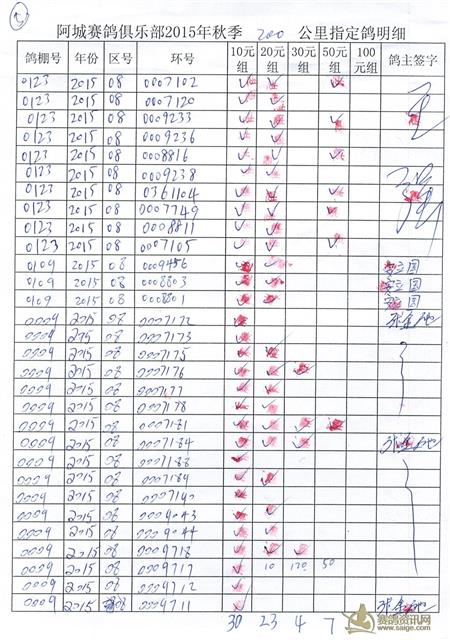 阿城赛鸽俱乐部2015年秋季 200 公里指定鸽明细
鸽棚号 年份 区号 环号 10元组 20元组 30元组 50元组 100元组 鸽主签字
0123 2015 08 0007102 ✓ ✓ ✓
0123 2015 08 0007120 ✓ ✓
0123 2015 08 0009233 ✓ ✓ ✓
0123 2015 08 0009236 ✓ ✓
0123 2015 08 0008816 ✓ ✓ ✓
0123 2015 08 0009238 ✓ ✓
0123 2015 08 0361104 ✓ ✓ ✓
0123 2015 08 0007749 ✓ ✓ ✓
0123 2015 08 0008811 ✓ ✓
0123 2015 08 0007105 ✓ ✓ ✓
0109 2015 08 0009456 ✓ ✓ 立国
0109 2015 08 0008803 ✓ ✓ 立国
0109 2015 08 0008801 ✓ ✓ 立国
0009 2015 08 0007172 ✓
0009 2015 08 0007173 ✓
0009 2015 08 0007175 ✓ ✓
0009 2015 08 0007176 ✓ ✓ ✓
0009 2015 08 0007177 ✓ ✓
0009 2015 08 0007178 ✓ ✓
0009 2015 08 0007181 ✓ ✓ ✓ ✓
0009 2015 08 0007184 ✓ ✓ ✓
0009 2015 08 0007188 ✓
0009 2015 08 0007189 ✓ ✓
0009 2015 08 0007140 ✓
0009 2015 08 0009043 ✓ ✓
0009 2015 08 0009044 ✓ ✓
0009 2015 08 0009718 ✓ ✓ ✓
0009 2015 08 0009717 ✓ 10 120 50
0009 2015 08 0009712 ✓
0009 2015 08 0009711 ✓
30 23 4 7
赛鸽资讯网
www.saige.com